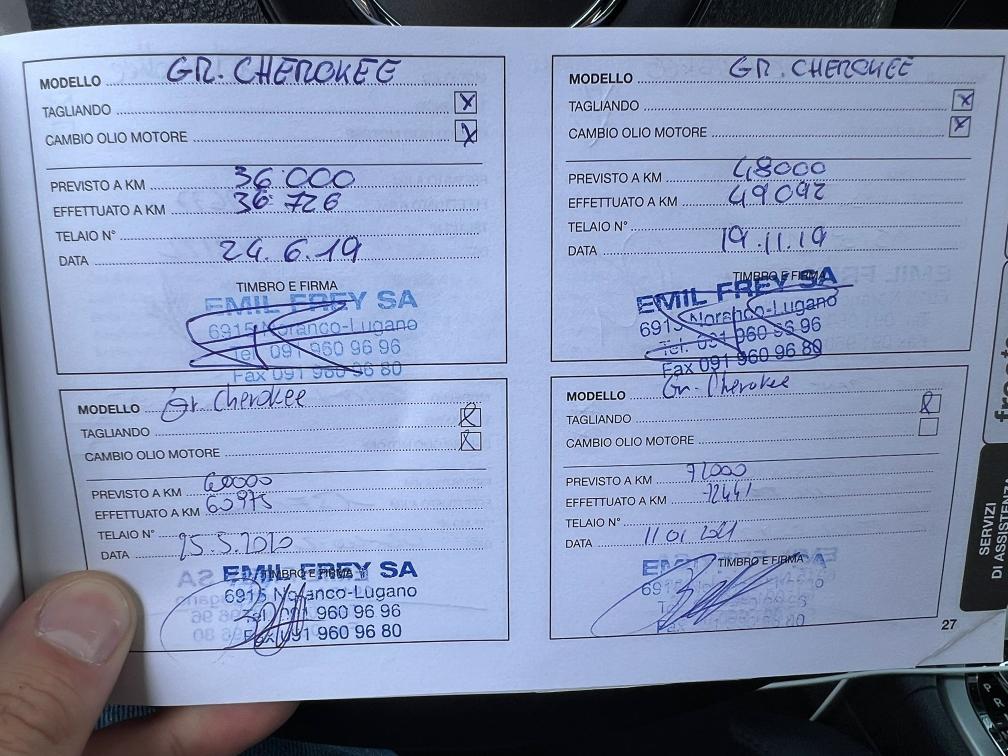 MODELLO GR. CHEROKEE
TAGLIANDO X
CAMBIO OLIO MOTORE X
PREVISTO A KM 36 000
EFFETTUATO A KM 36 726
TELAIO N°
DATA 24.6.19
TIMBRO E FIRMA
EMIL FREY SA
6915 Noranco-Lugano
Tel. 091 960 96 96
Fax 091 960 96 80
MODELLO GR. CHEROKEE
TAGLIANDO X
CAMBIO OLIO MOTORE X
PREVISTO A KM 48000
EFFETTUATO A KM 49092
TELAIO N°
DATA 19.11.19
TIMBRO E FIRMA
EMIL FREY SA
6915 Noranco-Lugano
Tel. 091 960 96 96
Fax 091 960 96 80
MODELLO Gr. Cherokee
TAGLIANDO X
CAMBIO OLIO MOTORE X
PREVISTO A KM 60000
EFFETTUATO A KM 60975
TELAIO N°
DATA 25.5.2020
TIMBRO E FIRMA
EMIL FREY SA
6915 Noranco-Lugano
Tel. 091 960 96 96
Fax 091 960 96 80
MODELLO Gr. Cherokee
TAGLIANDO X
CAMBIO OLIO MOTORE
PREVISTO A KM 72000
EFFETTUATO A KM 72441
TELAIO N°
DATA 11 01 2021
TIMBRO E FIRMA
27
SERVIZI
DI ASSISTENZA